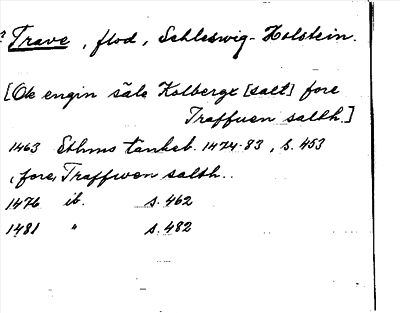 Trave, flod, Schleswig-Holstein.
[Ok engin säle Kolbergx [salt] fore
Traffuen saltk.]
1463 Sthms tankeb. 1474-83, s. 453
(fore) Traffwen saltk..
1476 ib. s. 462
1481 " s. 482